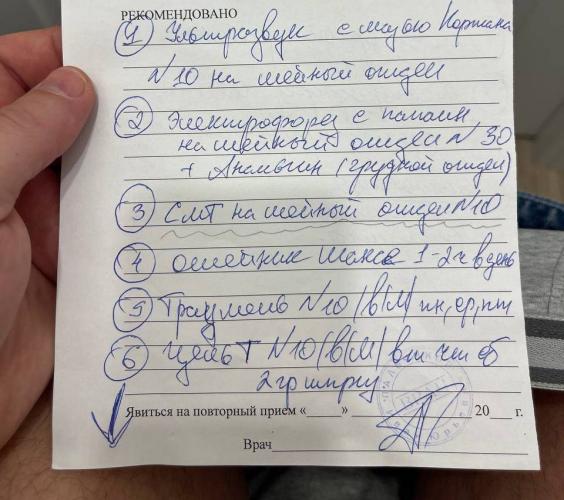 РЕКОМЕНДОВАНО
1 Ультразвук с мазью Карташа
N10 на шейный отдел
2 Электрофорез с папаин
на шейный отдел N 30
+ Анальгин (грудной отдел)
3 СМТ на шейный отдел N10
4 Ошейник Шанса 1-2 ч в день
5 Траумель N10 (в/м) пн, ср, пт
6 Цель Т N10 (в/м) вт чт сб
2 гр
Явиться на повторный прием «____» 20__ г.
Врач